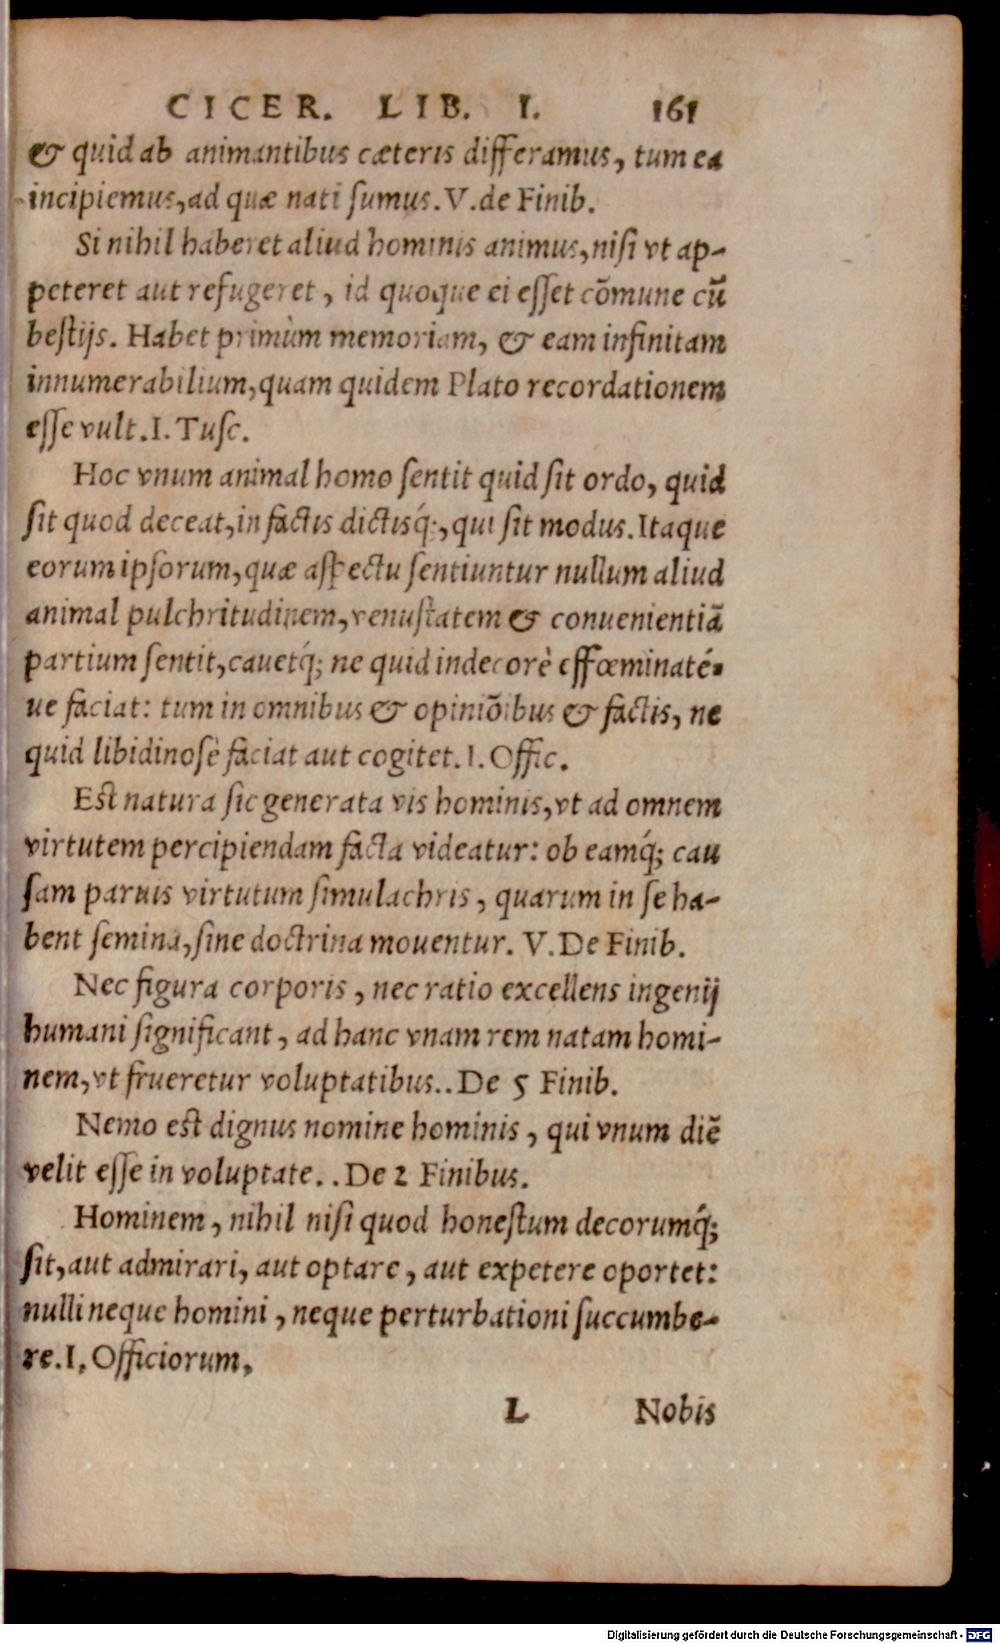 CICER. LIB. I. 161
& quid ab animantibus cæteris differamus, tum ea
incipiemus, ad quæ nati sumus. V. de Finib.
Si nihil haberet aliud hominis animus, nisi vt ap-
peteret aut refugeret, id quoque ei esset cõmune cũ
bestijs. Habet primùm memoriam, & eam infinitam
innumerabilium, quam quidem Plato recordationem
esse vult. I. Tusc.
Hoc vnum animal homo sentit quid sit ordo, quid
sit quod deceat, in factis dictisq́;, qui sit modus. Itaque
eorum ipsorum, quæ aspectu sentiuntur nullum aliud
animal pulchritudinem, venustatem & conuenientiã
partium sentit, cauetq́; ne quid indecorè effœminaté-
ue faciat: tum in omnibus & opiniõibus & factis, ne
quid libidinosè faciat aut cogitet. I. Offic.
Est natura sic generata vis hominis, vt ad omnem
virtutem percipiendam facta videatur: ob eamq́; cau
sam paruis virtutum simulachris, quarum in se ha-
bent semina, sine doctrina mouentur. V. De Finib.
Nec figura corporis, nec ratio excellens ingenij
humani significant, ad hanc vnam rem natam homi-
nem, vt frueretur voluptatibus.. De 5 Finib.
Nemo est dignus nomine hominis, qui vnum diẽ
velit esse in voluptate.. De 2 Finibus.
Hominem, nihil nisi quod honestum decorumq́;
sit, aut admirari, aut optare, aut expetere oportet:
nulli neque homini, neque perturbationi succumbe-
re. I. Officiorum.
L Nobis
Digitalisierung gefördert durch die Deutsche Forschungsgemeinschaft - DFG